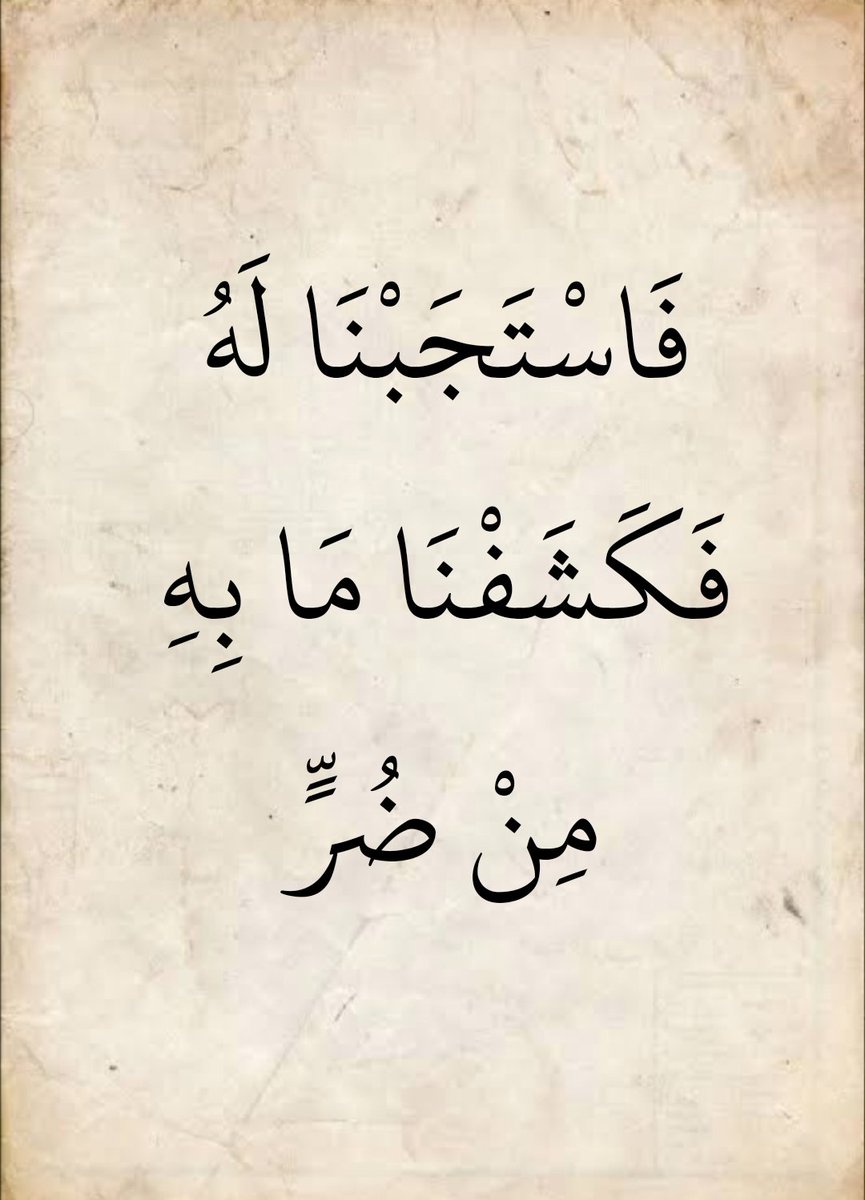 فَاسْتَجَبْنَا لَهُ
فَكَشَفْنَا مَا بِهِ
مِنْ ضُرٍّ